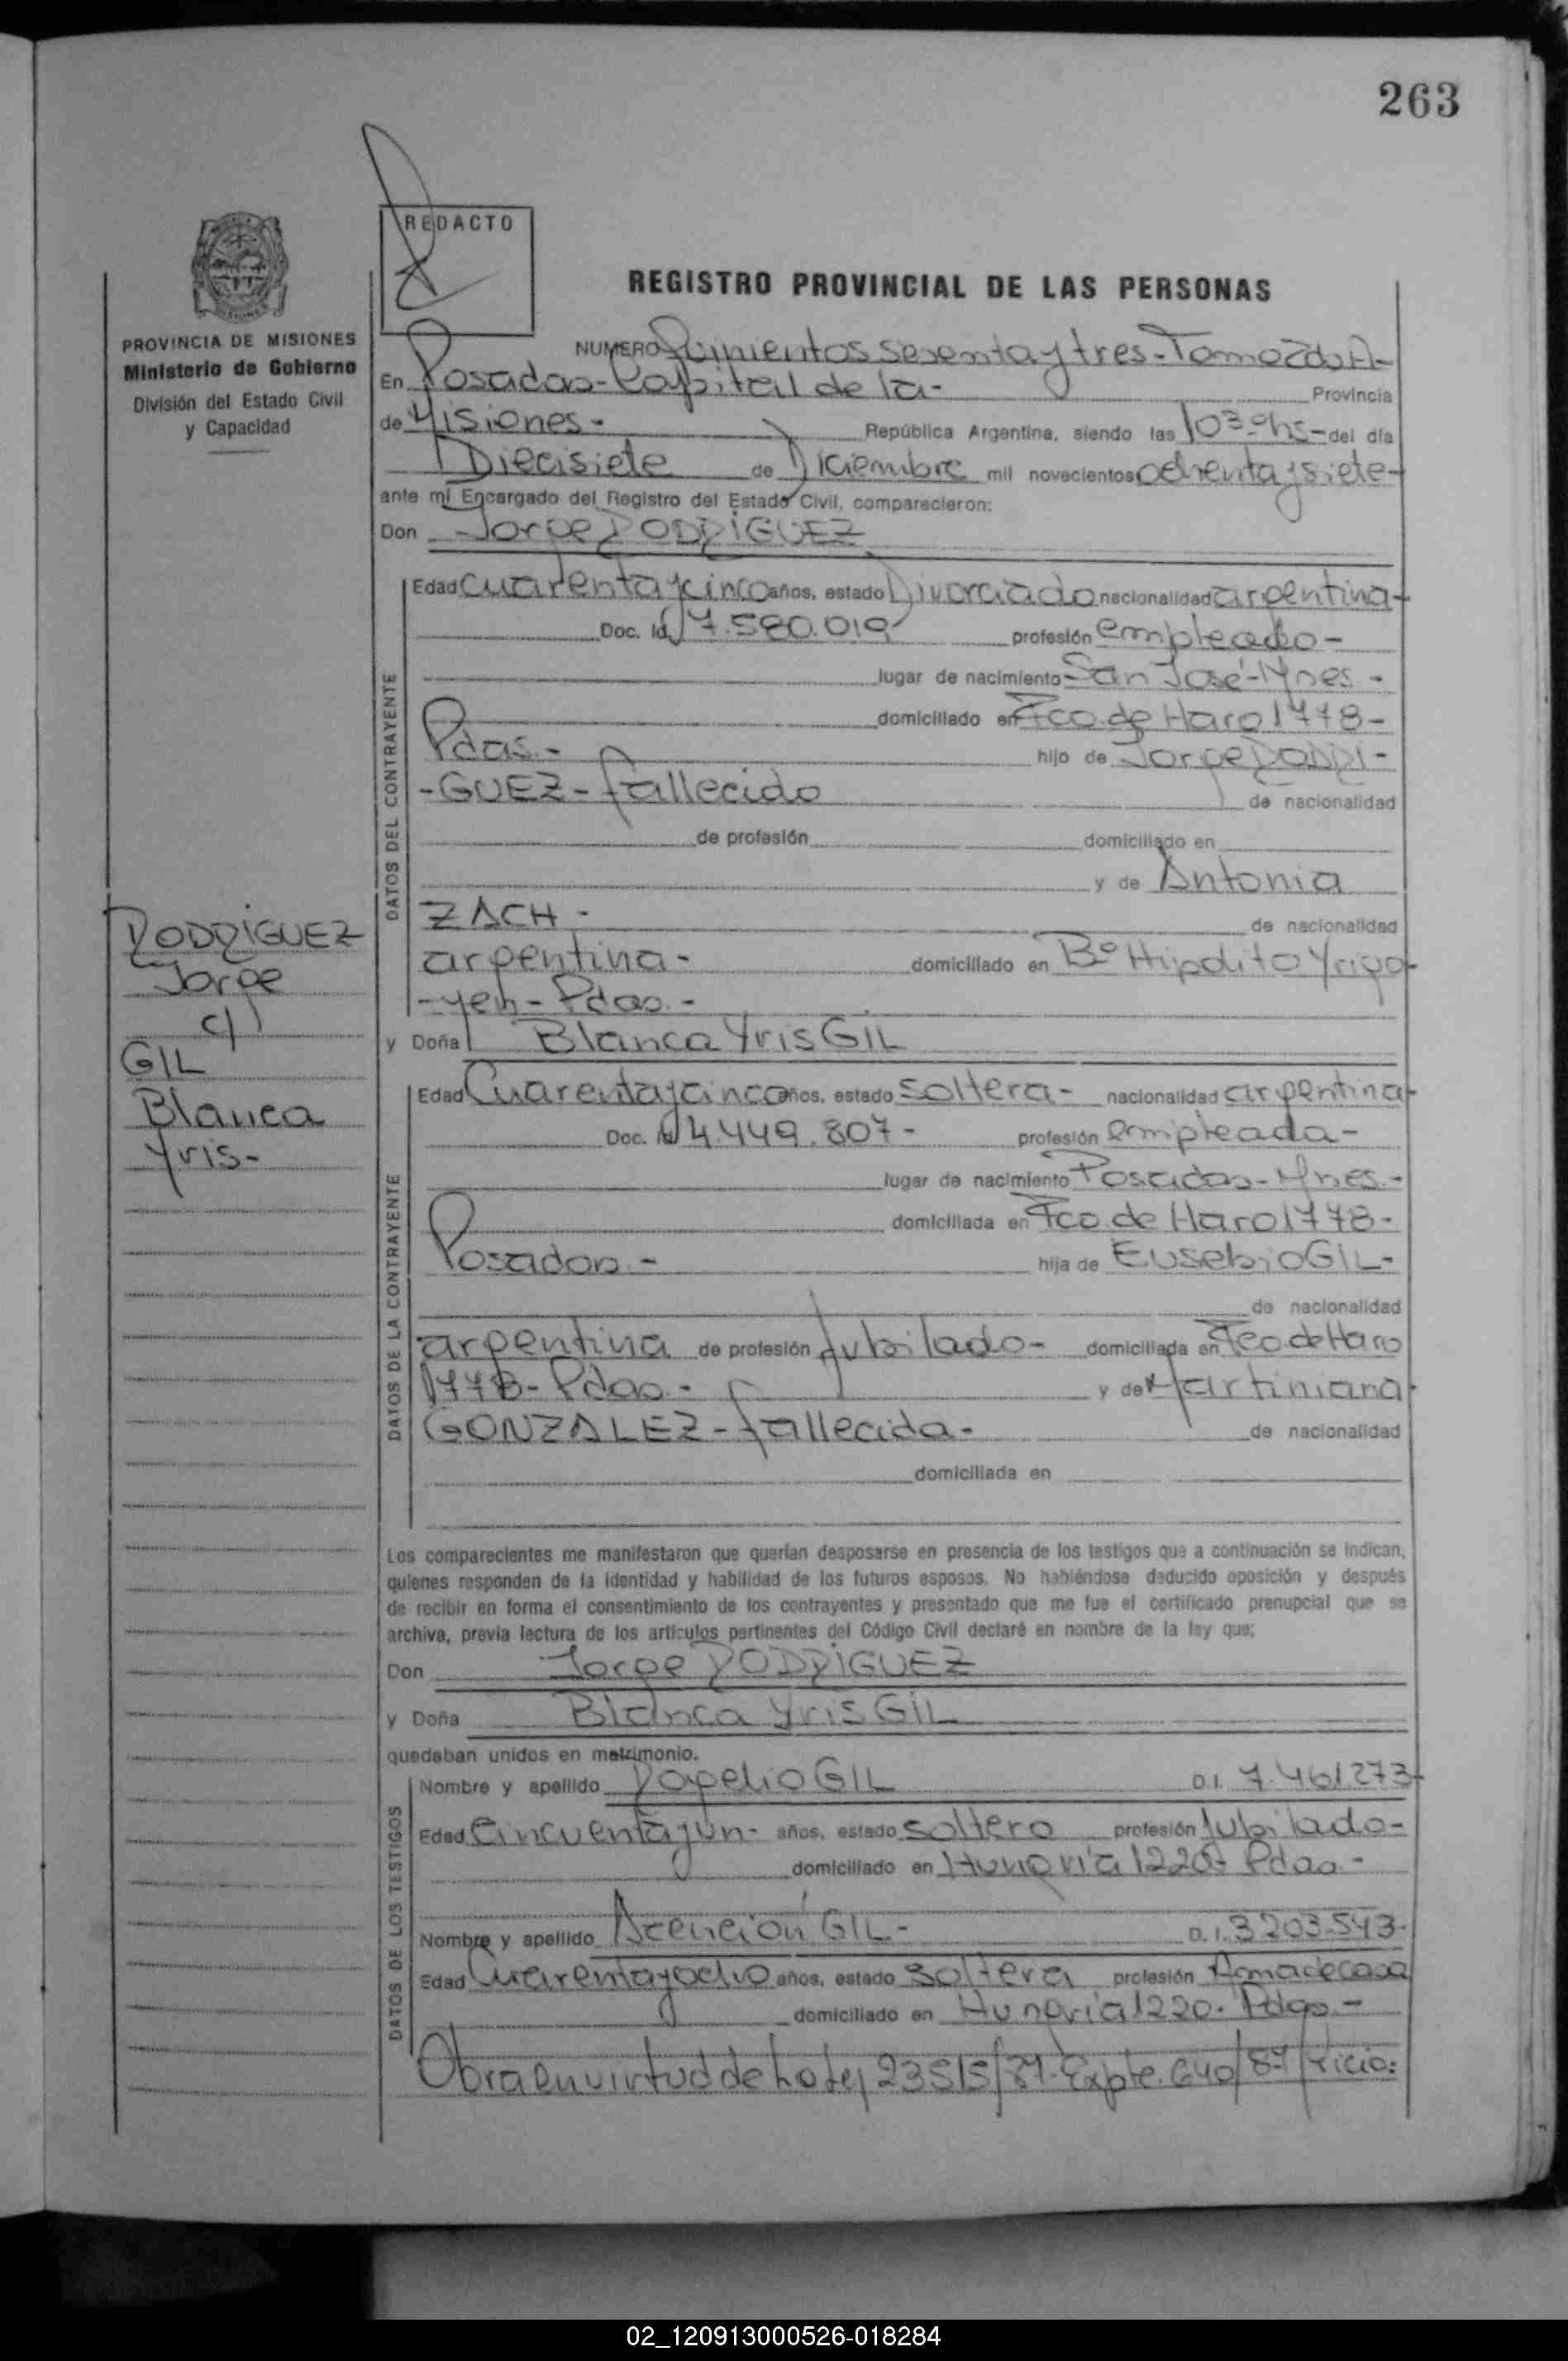 263
REDACTO
REGISTRO PROVINCIAL DE LAS PERSONAS
PROVINCIA DE MISIONES
Ministerio de Gobierno
División del Estado Civil
y Capacidad
NUMERO Quinientos Sesenta y tres - Tomo 2do A-
En Posadas - Capital de la - Provincia
de Misiones - República Argentina, siendo las 1030 hs - del día
Diecisiete de Diciembre mil novecientos ochenta y siete -
ante mí Encargado del Registro del Estado Civil, comparecieron:
Don Jorge RODRIGUEZ
DATOS DEL CONTRAYENTE
Edad Cuarenta y cinco años, estado Divorciado nacionalidad argentina -
Doc. Id. 7.580.019 profesión empleado -
lugar de nacimiento San José - Mnes -
domiciliado en Fco. de Haro 1778 -
Pdas. - hijo de Jorge RODRI -
- GUEZ - fallecido de nacionalidad
de profesión domiciliado en
y de Antonia
ZACH - de nacionalidad
argentina - domiciliado en Bº Hipolito Yrigo
- yen - Pdas. -
RODRIGUEZ
Jorge
c/
GIL
Blanca
Yris -
y Doña Blanca Yris GIL
DATOS DE LA CONTRAYENTE
Edad Cuarenta y cinco años, estado Soltera - nacionalidad argentina -
Doc. Id 4.449.807 - profesión empleada -
lugar de nacimiento Posadas - Mnes. -
domiciliada en Fco. de Haro 1778 -
Posadas. - hija de Eusebio GIL -
de nacionalidad
argentina de profesión Jubilado - domiciliada en Fco de Haro
1778 - Pdas. - y de Martiniana
GONZALEZ - fallecida - de nacionalidad
domiciliada en
Los comparecientes me manifestaron que querían desposarse en presencia de los testigos que a continuación se indican,
quienes responden de la identidad y habilidad de los futuros esposos. No habiéndose deducido oposición y después
de recibir en forma el consentimiento de los contrayentes y presentado que me fue el certificado prenupcial que se
archiva, previa lectura de los artículos pertinentes del Código Civil declaré en nombre de la ley que;
Don Jorge RODRIGUEZ
y Doña Blanca Yris GIL
quedaban unidos en matrimonio.
DATOS DE LOS TESTIGOS
Nombre y apellido Rogelio GIL D.I. 7.461273 -
Edad Cincuenta y un - años, estado Soltero profesión Jubilado -
domiciliado en Hungría 1220 - Pdas. -
Nombre y apellido Acención GIL - D.I. 3.203.543 -
Edad Cuarenta y ocho años, estado Soltera profesión Ama de casa
domiciliado en Hungría 1220 - Pdas. -
Obra en virtud de la Ley 23515/87 - Expte. 640/87
02_120913000526-018284